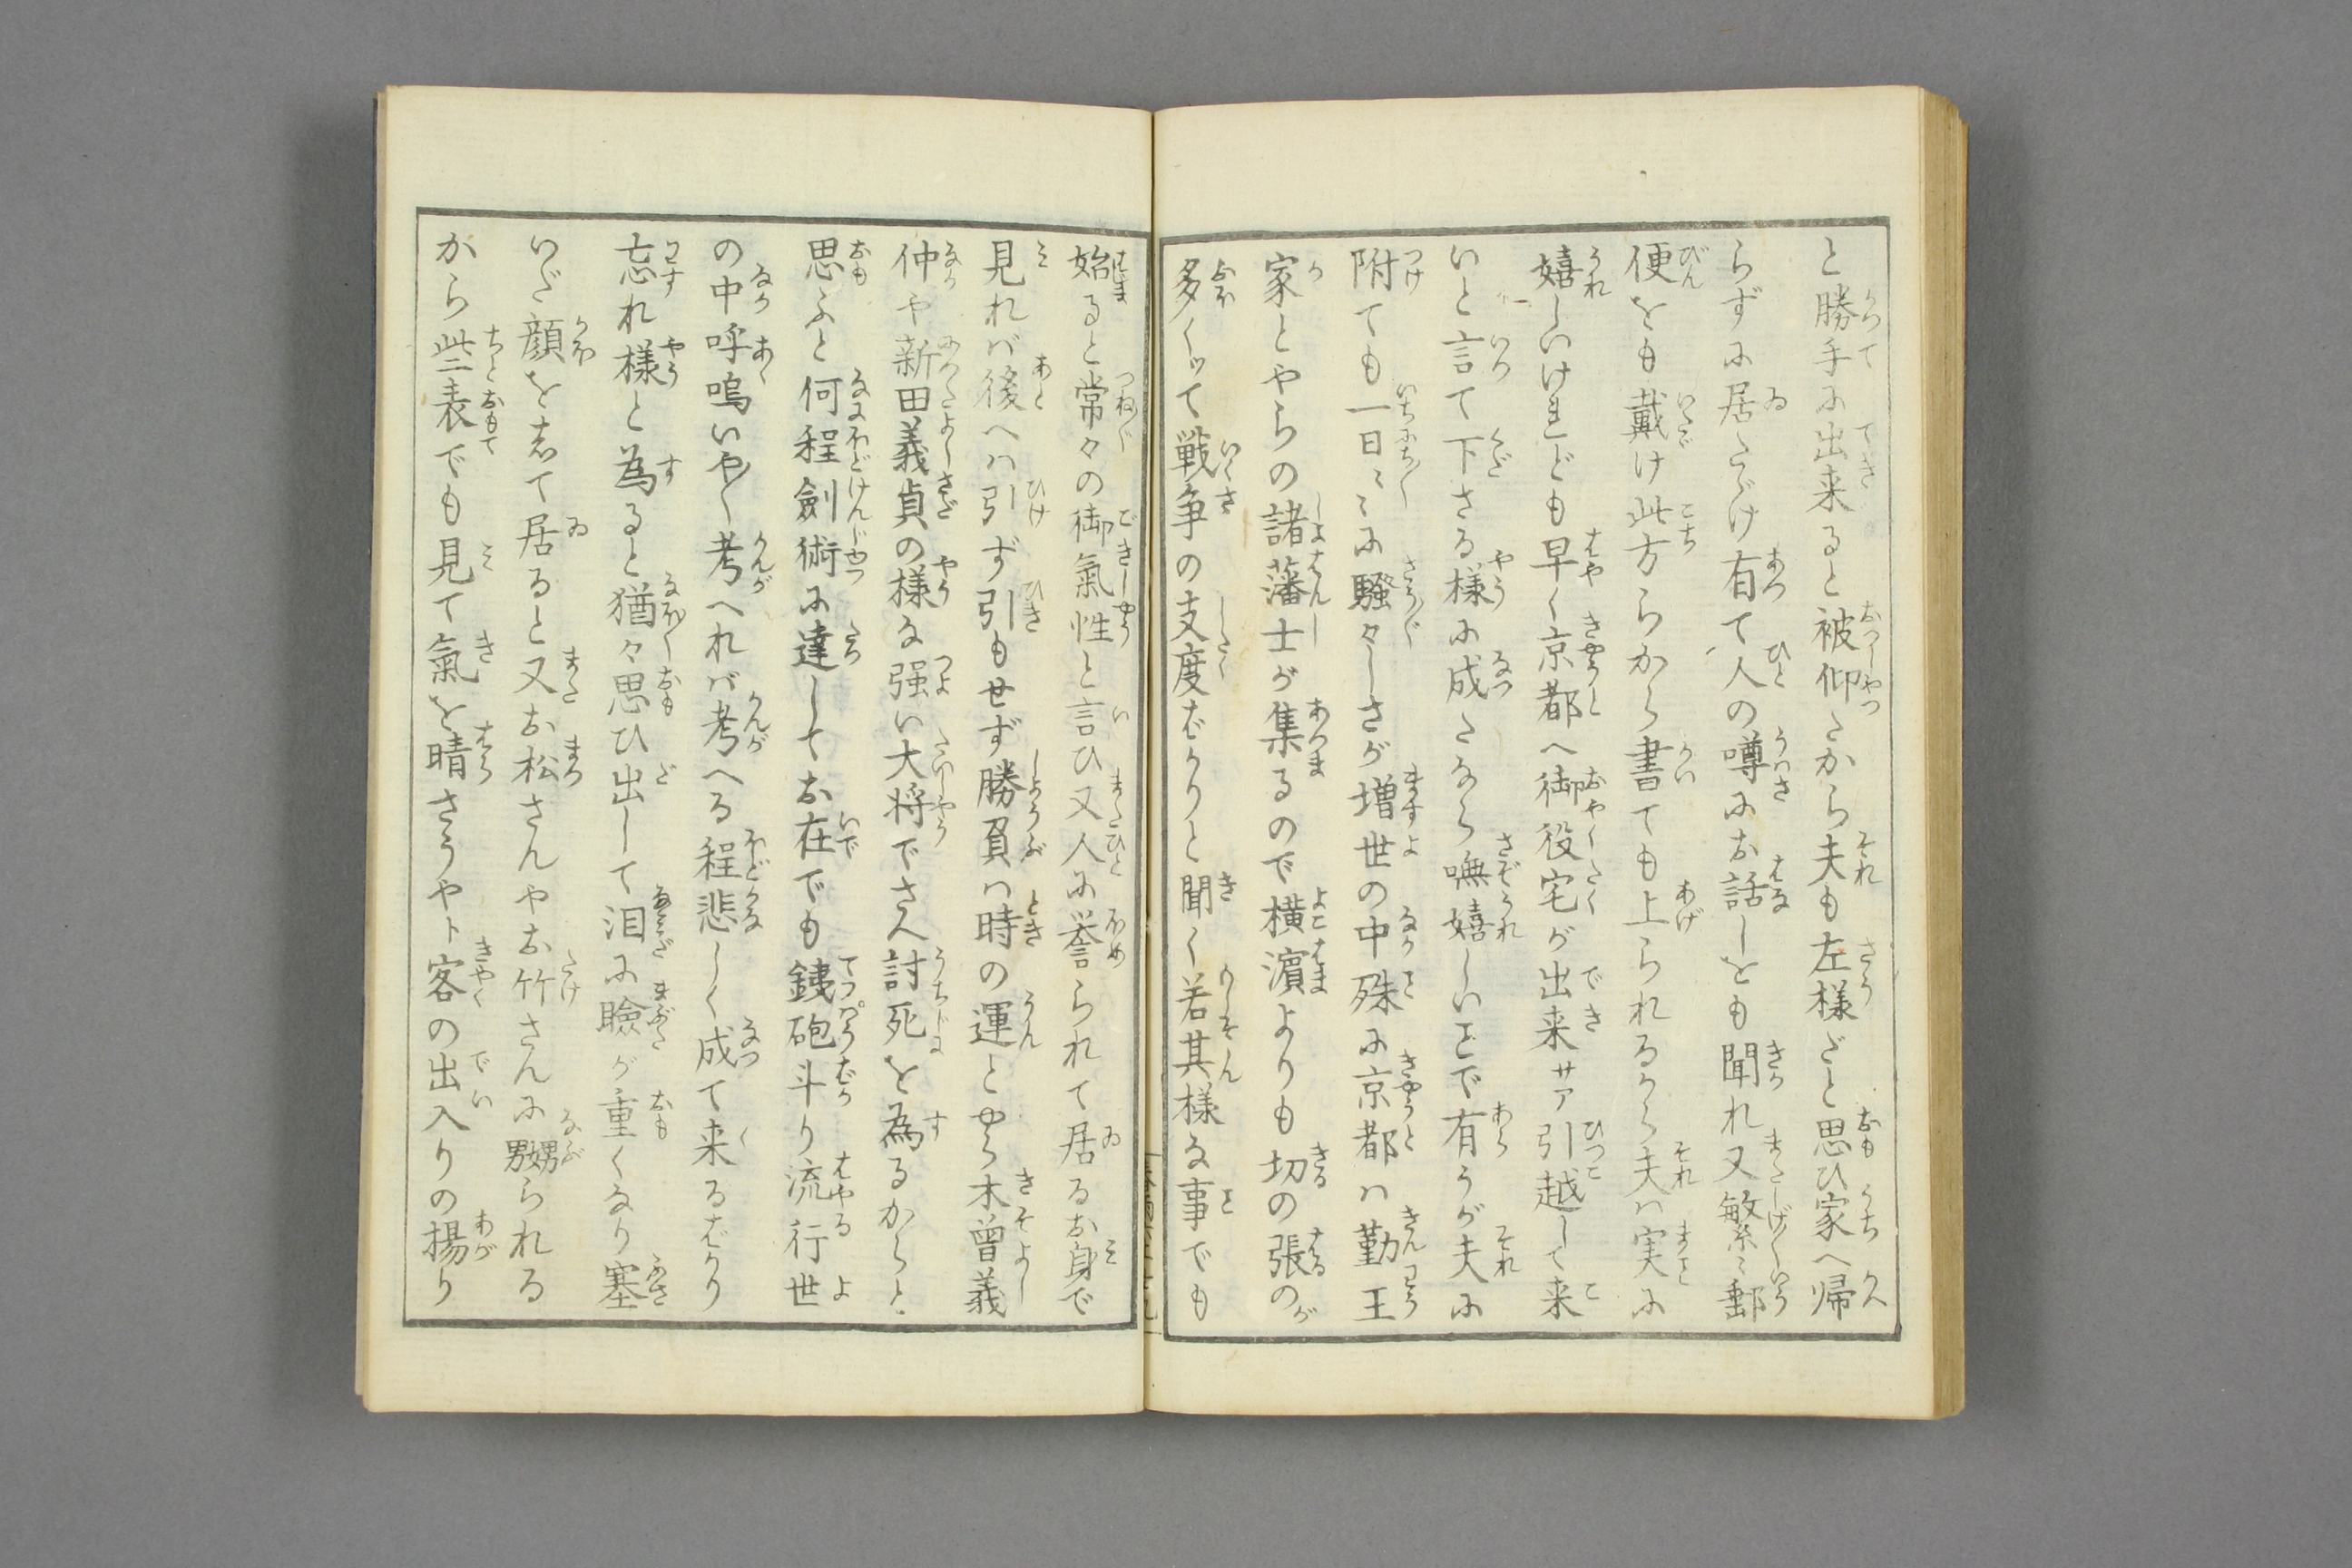 と勝手に出来ると被仰たから夫も左様だと思ひ家へ帰
らずに居ただけ有て人の噂にお話しをも聞れ又繁々郵
便をも戴け此方らから書ても上られるから夫ハ実に
嬉しいけれども早く京都へ御役宅が出来サア引越して来
いと言て下さる様に成たなら嘸嬉しいことで有うが夫に
附ても一日〻〻に騒々しさが増世の中殊に京都ハ勤王
家とやらの諸藩士が集るので横濱よりも切の張のが
多くッて戦争の支度ばかりと聞く若其様な事でも
始ると常々の御氣性と言ひ又人に誉られて居るお身で
見れバ後へハ引ず引もせず勝負ハ時の運とやら木曽義
仲や新田義貞の様な强い大将でさへ討死を為るからと
思ふと何程劍術に達してお在でも銕砲斗り流行世
の中呼嗚いや〳〵考へれバ考へる程悲しく成て来るばかり
忘れ様と為ると猶々思ひ出して泪に瞼が重くなり塞
いだ顔をして居ると又お松さんやお竹さんに嬲られる
から些表でも見て氣を晴さうやト客の出入りの揚り